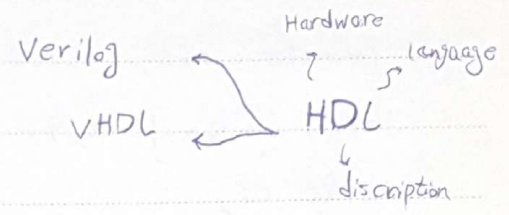 Hardware
Verilog
language
VHDL
HDL
discription